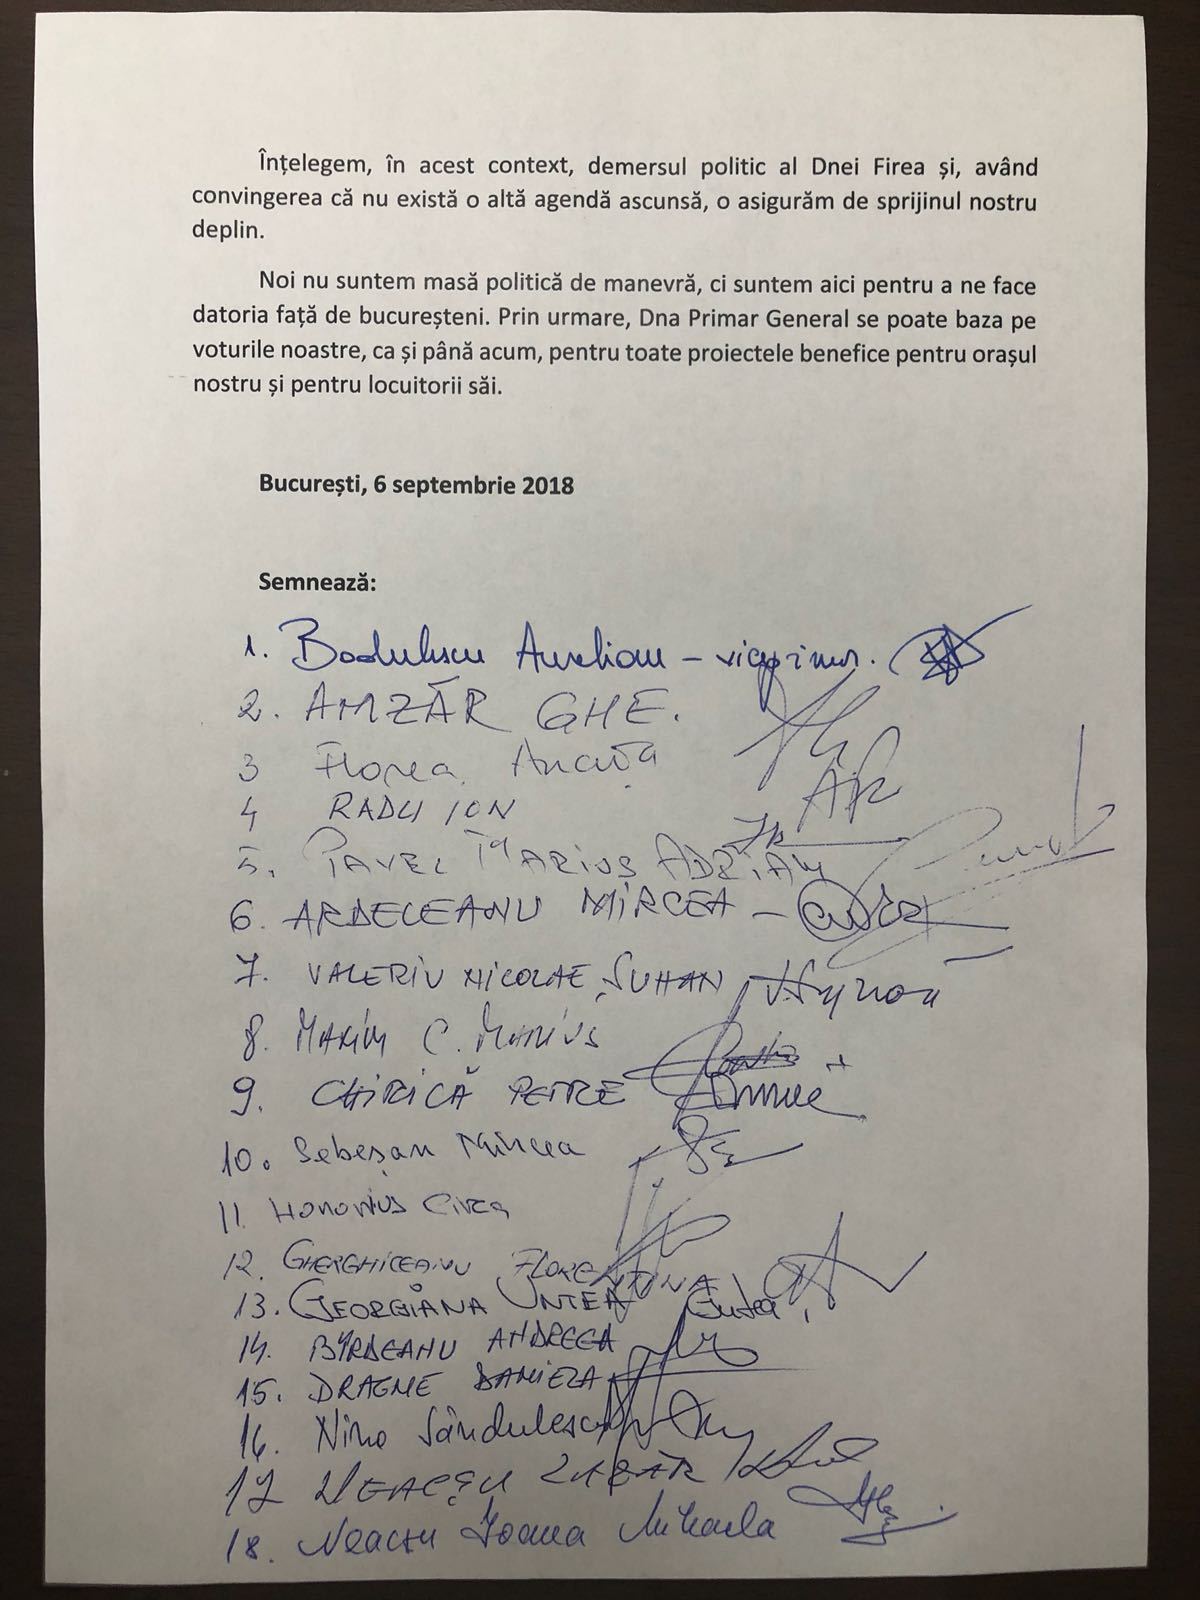 Înțelegem, în acest context, demersul politic al Dnei Firea și, având
convingerea că nu există o altă agendă ascunsă, o asigurăm de sprijinul nostru
deplin.
Noi nu suntem masă politică de manevră, ci suntem aici pentru a ne face
datoria față de bucureșteni. Prin urmare, Dna Primar General se poate baza pe
voturile noastre, ca și până acum, pentru toate proiectele benefice pentru orașul
nostru și pentru locuitorii săi.
București, 6 septembrie 2018
Semnează:
1. Badulescu Aurelian - viceprimar.
2. AMZĂR GHE.
3 Florea Ancuța
4 RADU ION
5. PAVEL MARIUS ADRIAN
6. ARDELEANU MIRCEA -
7. VALERIU NICOLAE ȘUHAN
8. MARIN C. MARIUS
9. CHIRICĂ PETRE
10. Sebeșan Mircea
11. HONORIUS CIRCA
12. GHERGHICEANU FLORENTINA
13. GEORGIANA UNTEA
14. BÎRDEANU ANDREEA
15. DRAGNE DANIELA
16. Nina Sândulescu
17 NEACȘU LAZĂR
18. Neacsu Ioana Mihaela